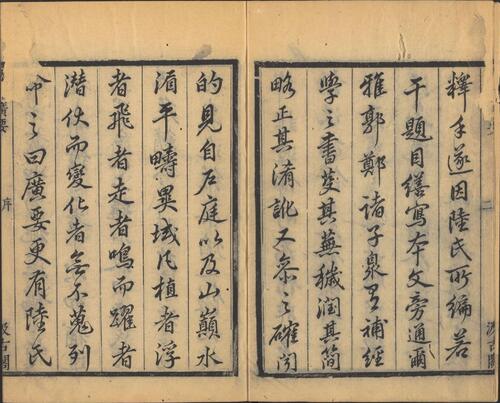 釋手遂因陸氏所編若
干題目繕寫本文旁通爾
雅郭鄭諸子泉及補經
學之書芟其蕪穢潤其簡
略正其淆訛又參之確聞
的見自石庭以及山巔水
湄平疇異域凡植者浮
者飛者走者鳴而躍者
潛伏而變化者無不蒐列
命之曰廣要更有陸氏
廣要
序
汲古閣